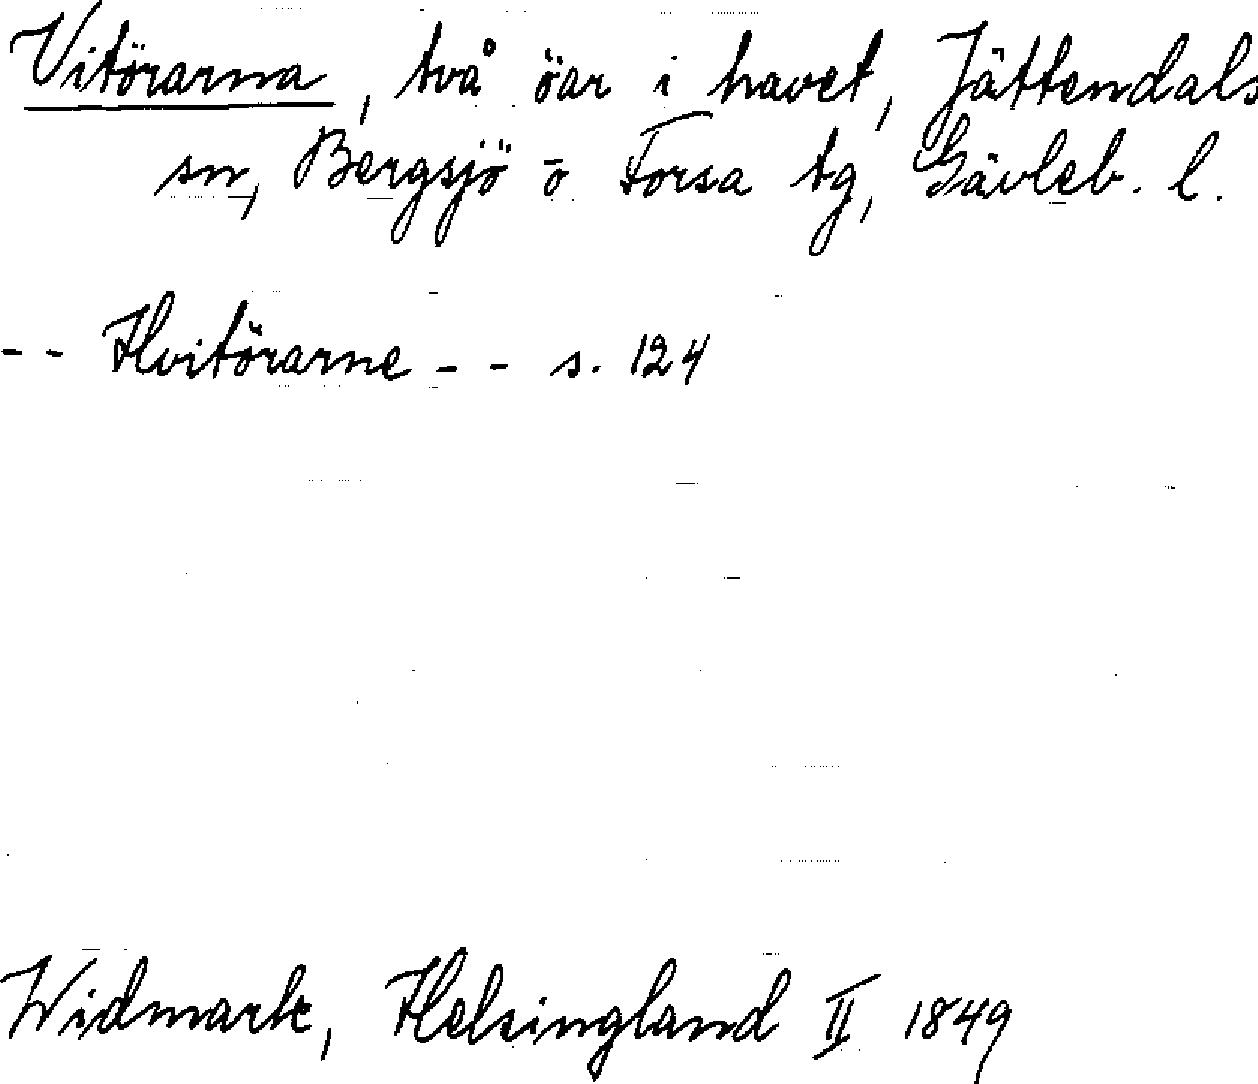 Vitörarna, två öar i havet, Jättendals
sn, Bergsjö o Forsa tg, Gävleb. l.
-- Hvitörarne -- s. 124
Widmark, Helsingland II 1849